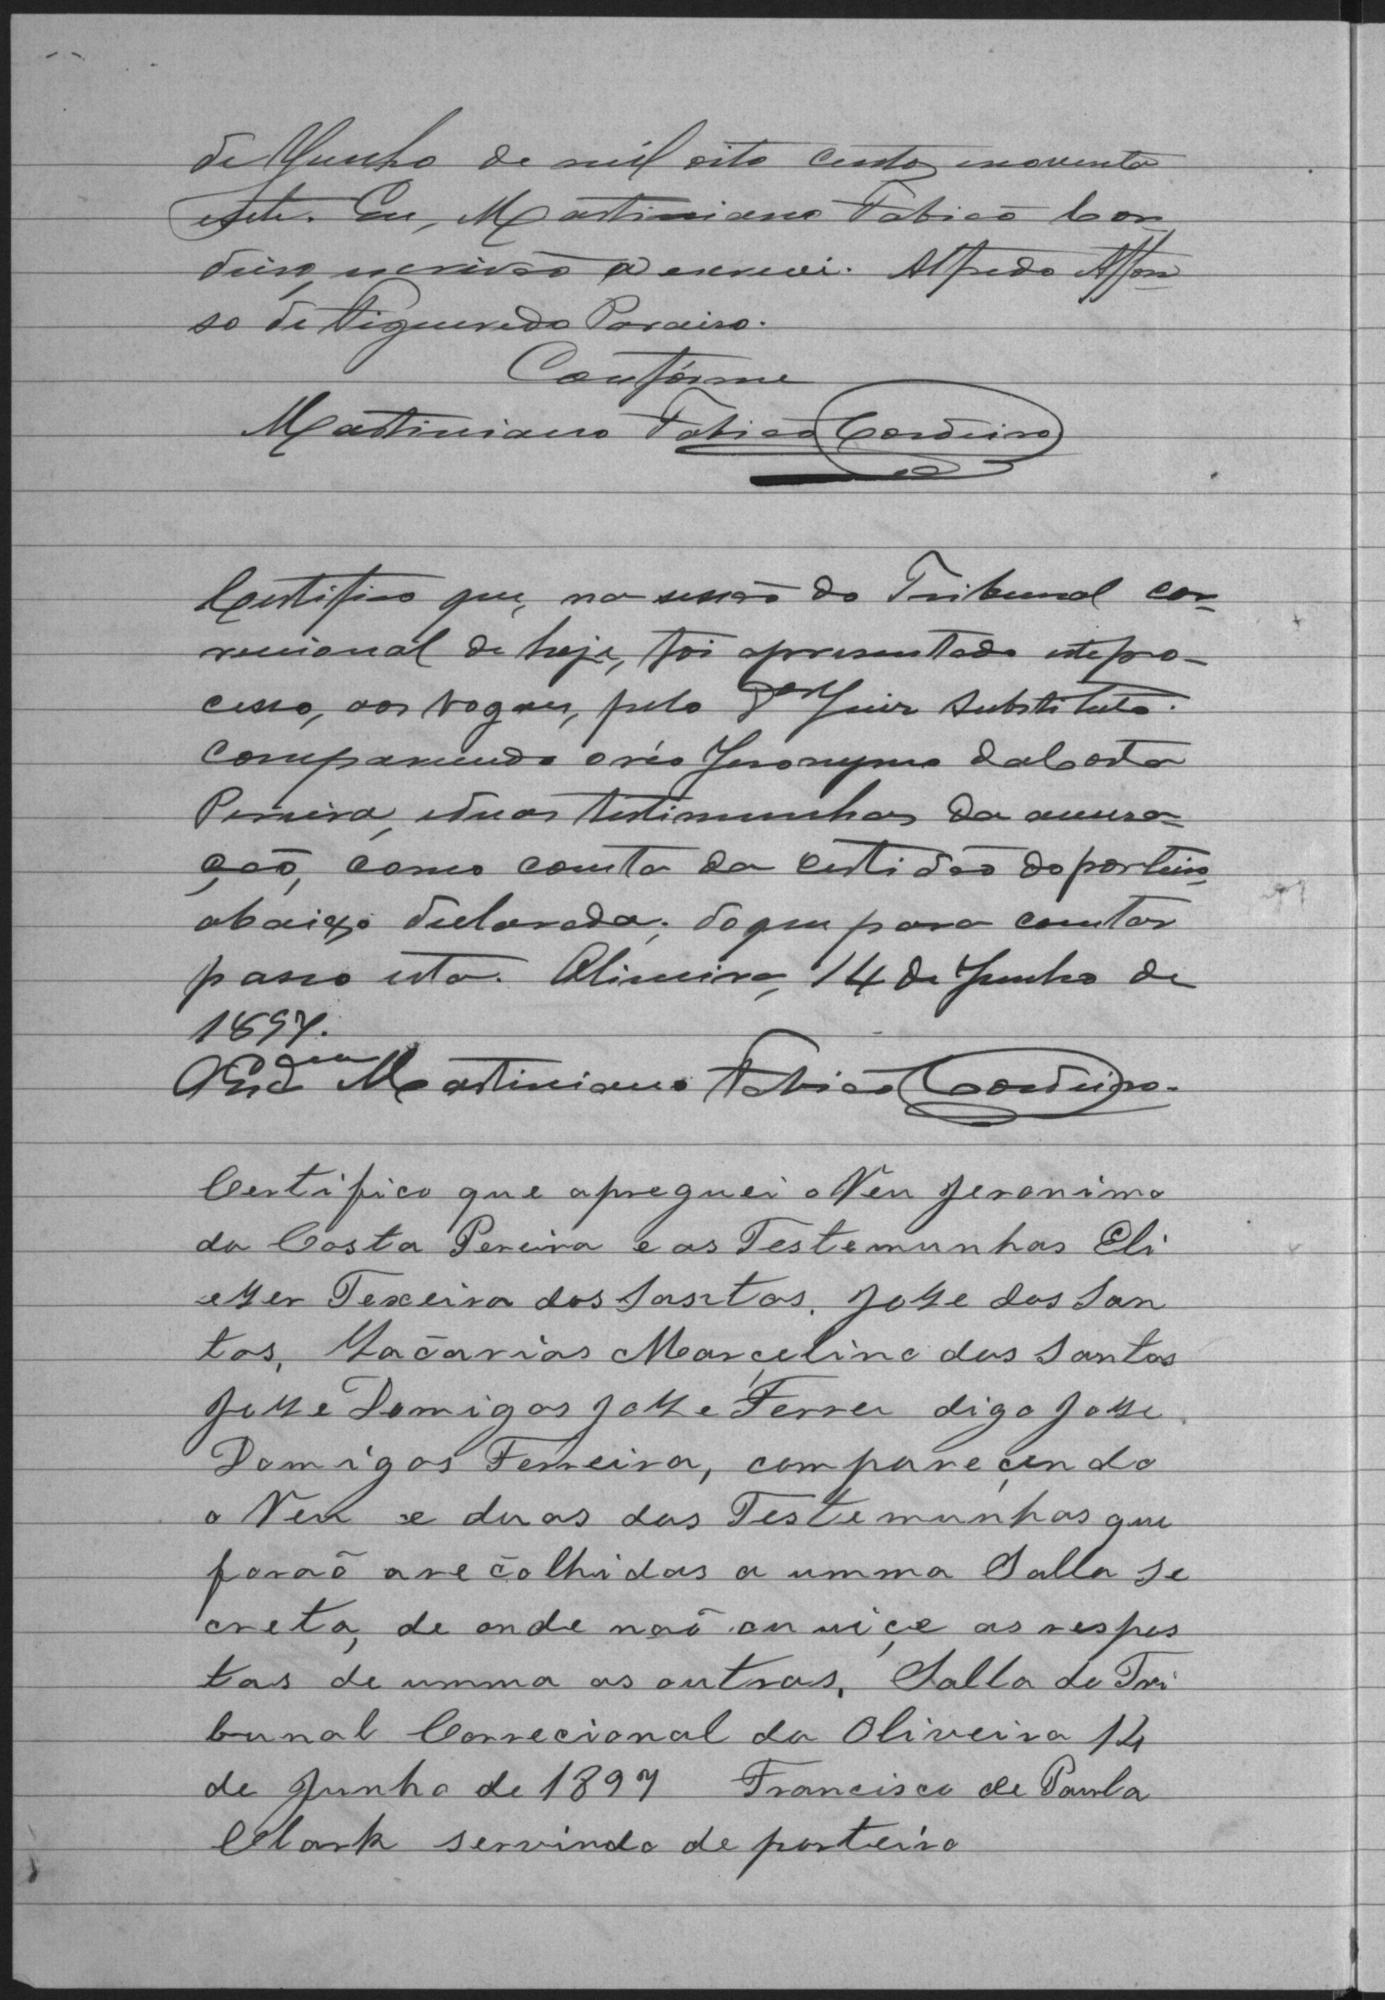 de Junho de mil oito centos enoventa
esete. Eu, Martiniano Fabião Cor-
deiro, escrivão o escrevi. Alfredo Affon-
so de Figueredo Paraiso.
Confórme
Martiniano Fabião Cordeiro
Certifico que, na sessão do Tribunal cor-
reccional de hoje, foi apresentado este pro-
cesso, aos vogaes, pelo Dor Juiz Substituto.
comparecendo o réo Jeronymo da Costa
Pereira, e duas testimunhas da accusa-
ção, como consta da certidão do porteiro,
abaixo declarada; do que para constar
passo esta. Oliveira, 14 de Junho de
1897.
O Martiniano Fabião Cordeiro.
Certifico que apreguei o Reu Jeronimo
da Costa Pereira e as Testemunhas Eli
ezer Texeira dos Sasntos. Joze dos San
tos, Zacarias Marçelino dos Santos
Joze Domigos Joze Ferrei digo Joze
Domigos Ferreira, compareçendo
o Reu e duas das Testemunhas que
foraõ arecolhidas a umma Salla se
creta, de onde naõ ouviçe as respos
tas de umma as outras, Salla do Tri
bunal Correcional da Oliveira 14
de Junho de 1897 Francisco de Paula
Clark servindo de porteiro